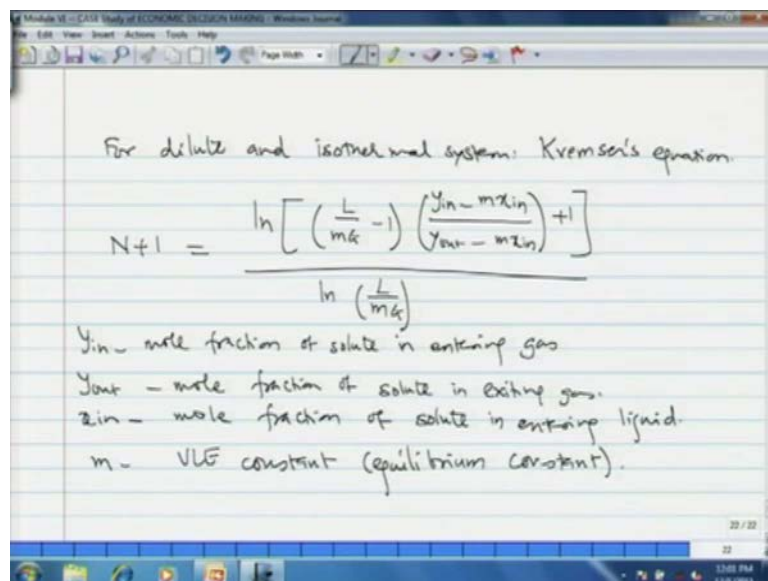 Module VI - CASE Study of ECONOMIC DECISION MAKING - Windows Journal
File Edit View Insert Actions Tools Help
Page Width
For dilute and isothermal system: Kremser's equation.
N+1 = ln[(L/mG - 1)((yin - mxin)/(yout - mxin)) + 1] / ln(L/mG)
yin - mole fraction of solute in entering gas
yout - mole fraction of solute in exiting gas.
xin - mole fraction of solute in entering liquid.
m - VLE constant (equilibrium constant).
22 / 22
22
12:01 PM